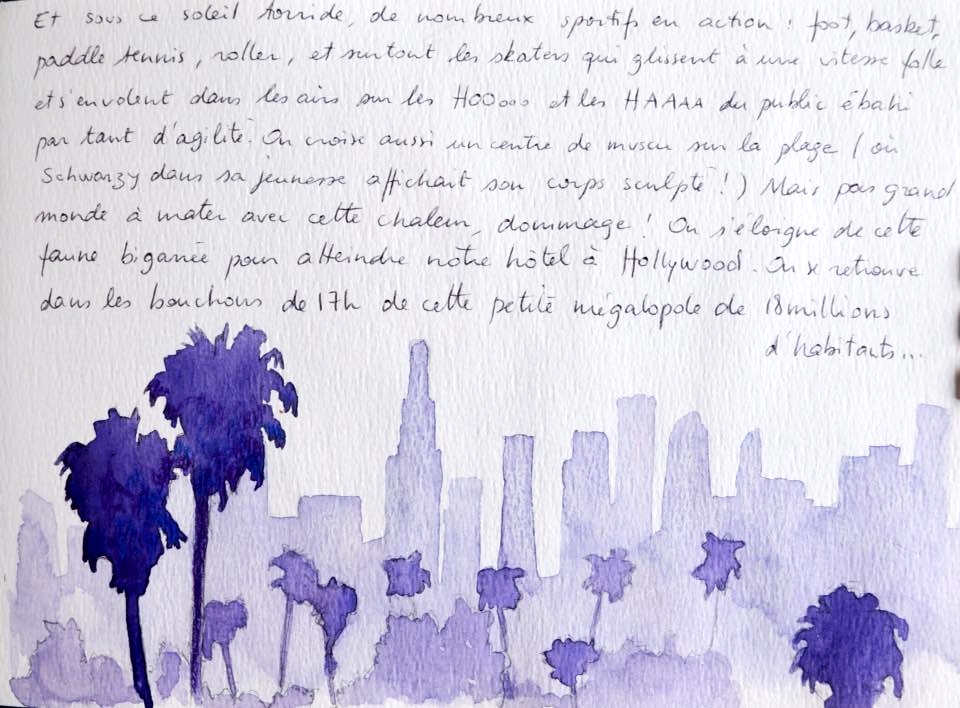 Et sous ce soleil torride, de nombreux sportifs en action : foot, basket,
paddle tennis, roller, et surtout les skaters qui glissent à une vitesse folle
et s'envolent dans les airs sur les HOOooo et les HAAAA du public ébahi
par tant d'agilité. On croise aussi un centre de muscu sur la plage (où
Schwarzy dans sa jeunesse affichait son corps sculpté !) Mais pas grand
monde à mater avec cette chaleur, dommage ! On s'éloigne de cette
faune bigarrée pour atteindre notre hôtel à Hollywood. On se retrouve
dans les bouchons de 17h de cette petite mégalopole de 18 millions
d'habitants...